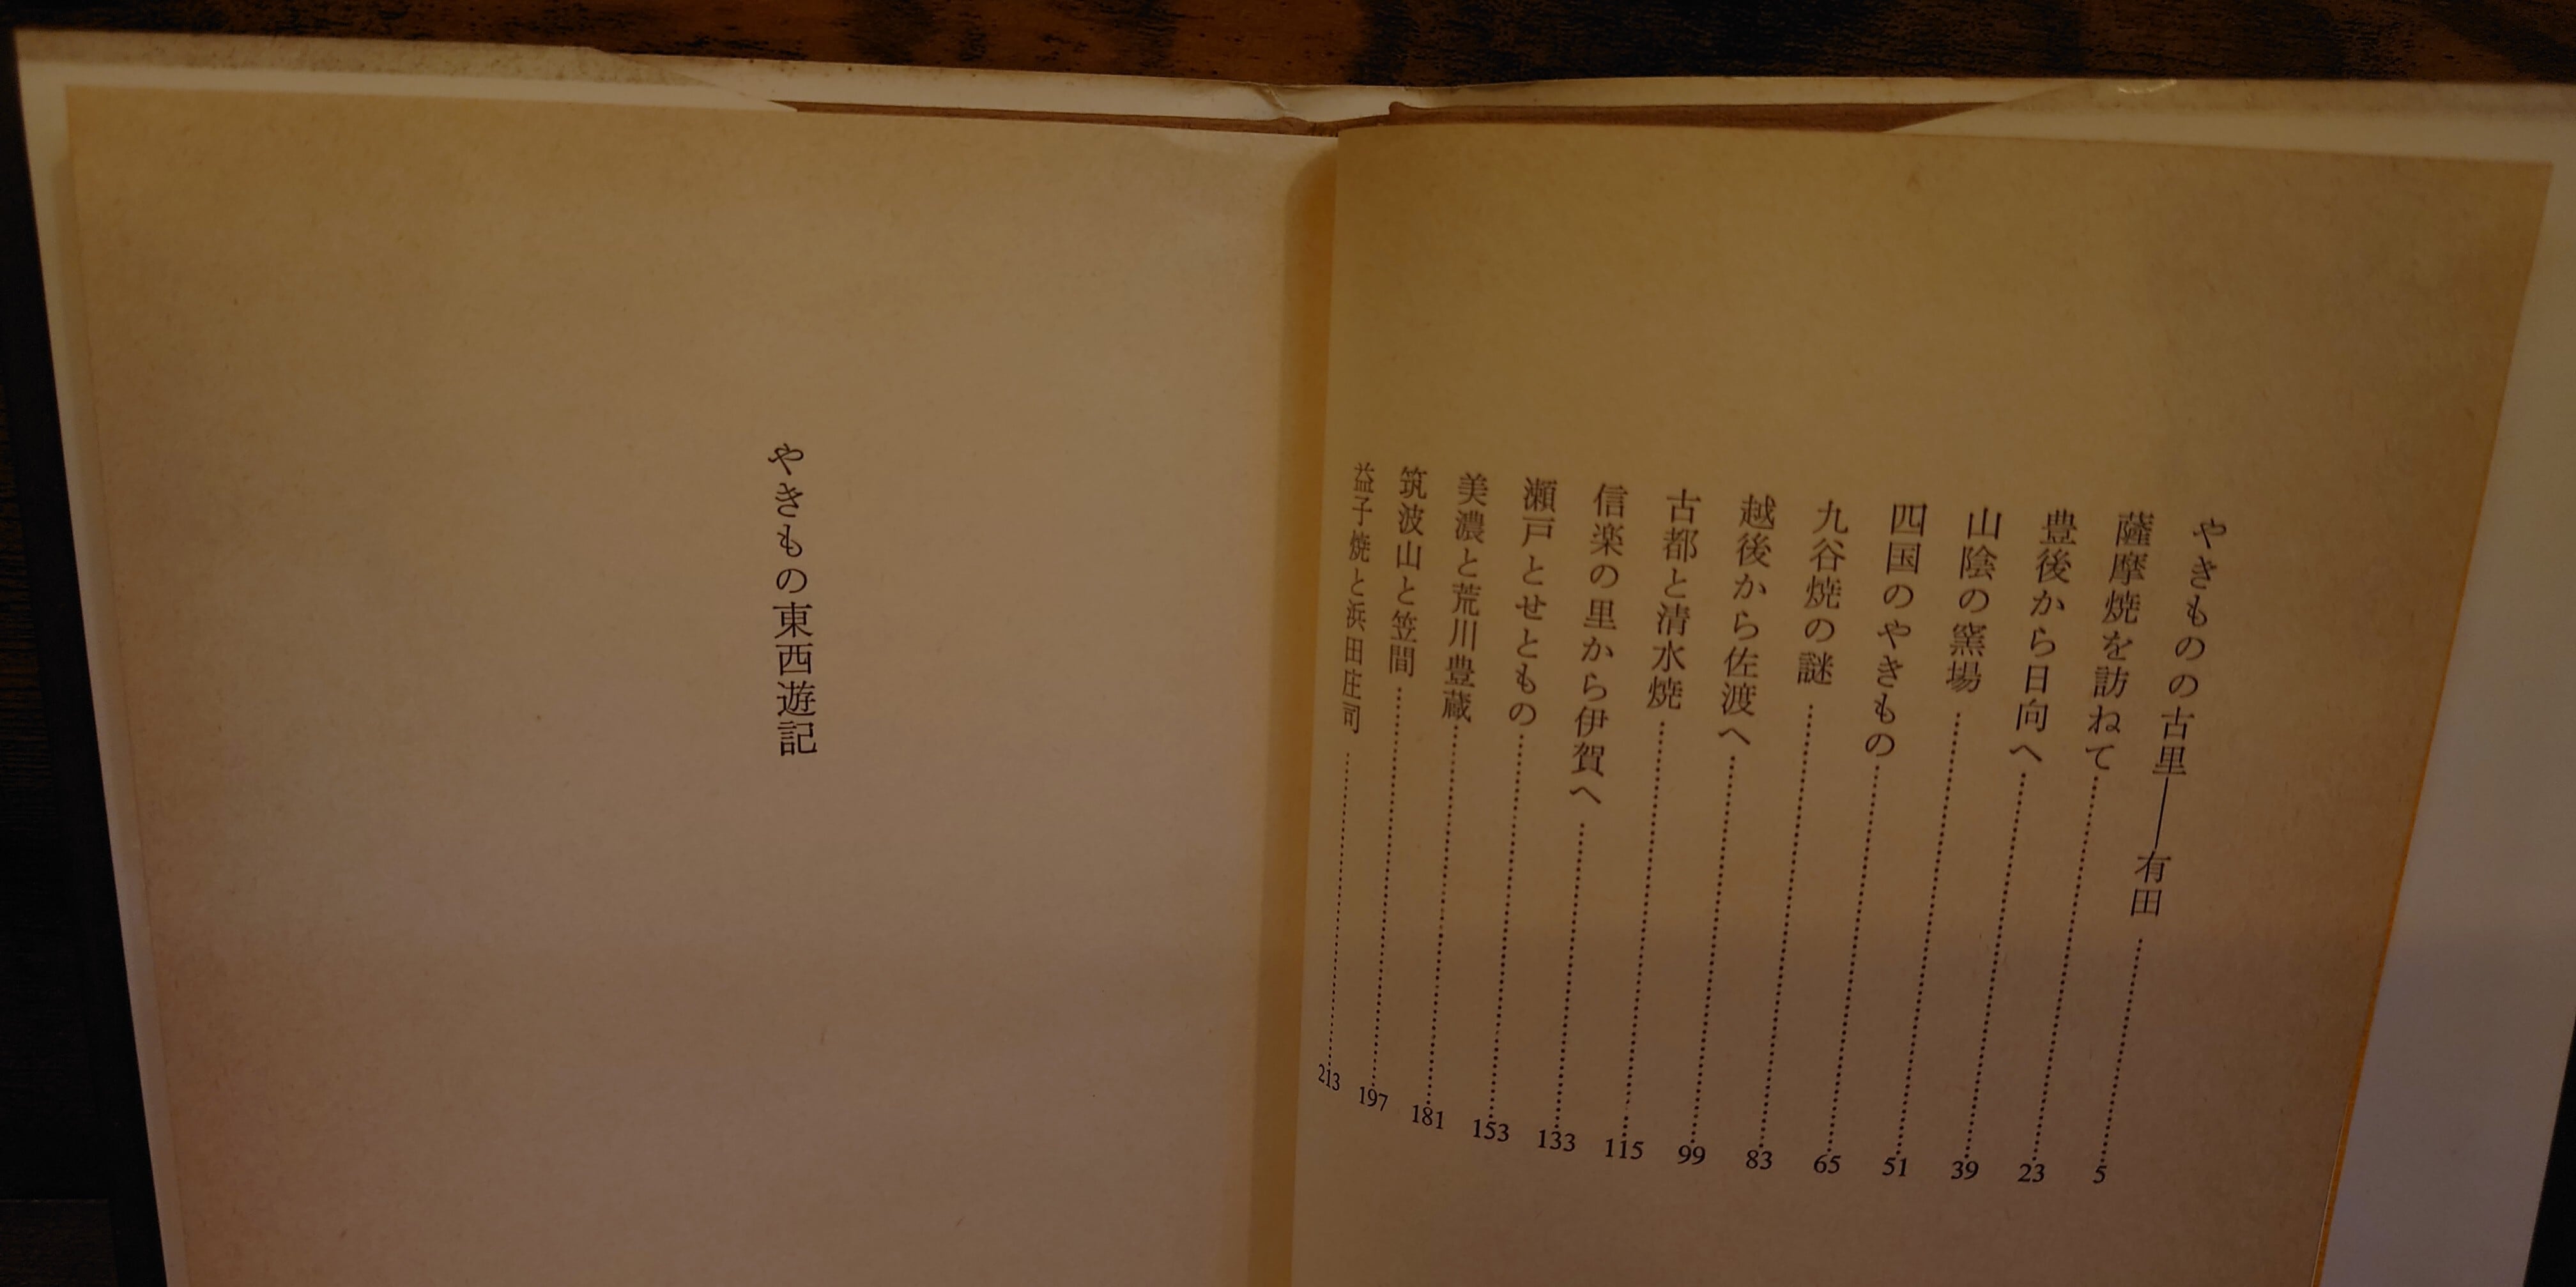 やきものの古里――有田 5
薩摩焼を訪ねて 23
豊後から日向へ 39
山陰の窯場 51
四国のやきもの 65
九谷焼の謎 83
越後から佐渡へ 99
古都と清水焼 115
信楽の里から伊賀へ 133
瀬戸とせともの 153
美濃と荒川豊蔵 181
筑波山と笠間 197
益子焼と浜田庄司 213
やきもの東西遊記